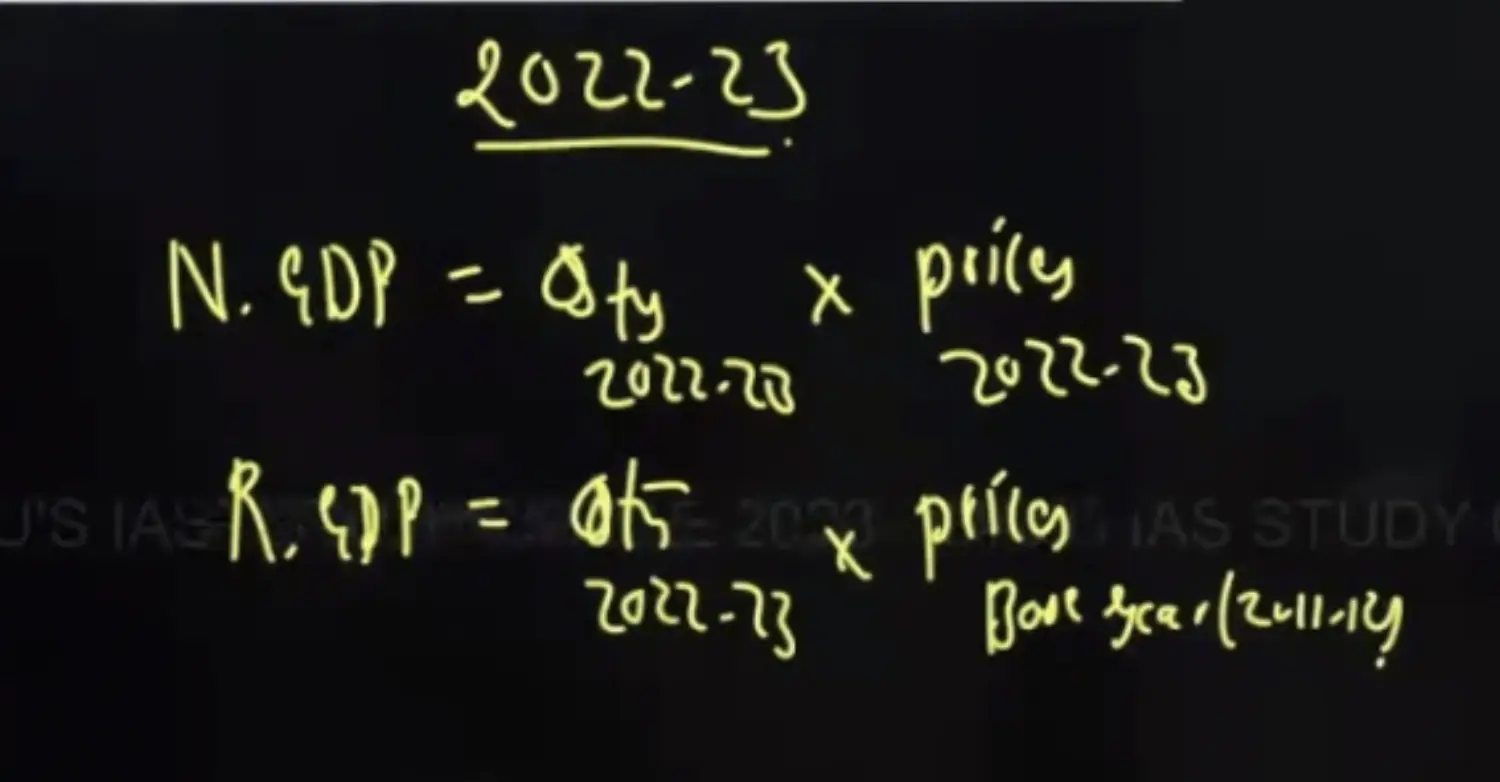 2022-23
N. GDP = Qty x prices
2022-23 2022-23
R. GDP = Qty x prices
2022-23 Base year (2011-12)
U'S IAS 2023 IAS STUDY